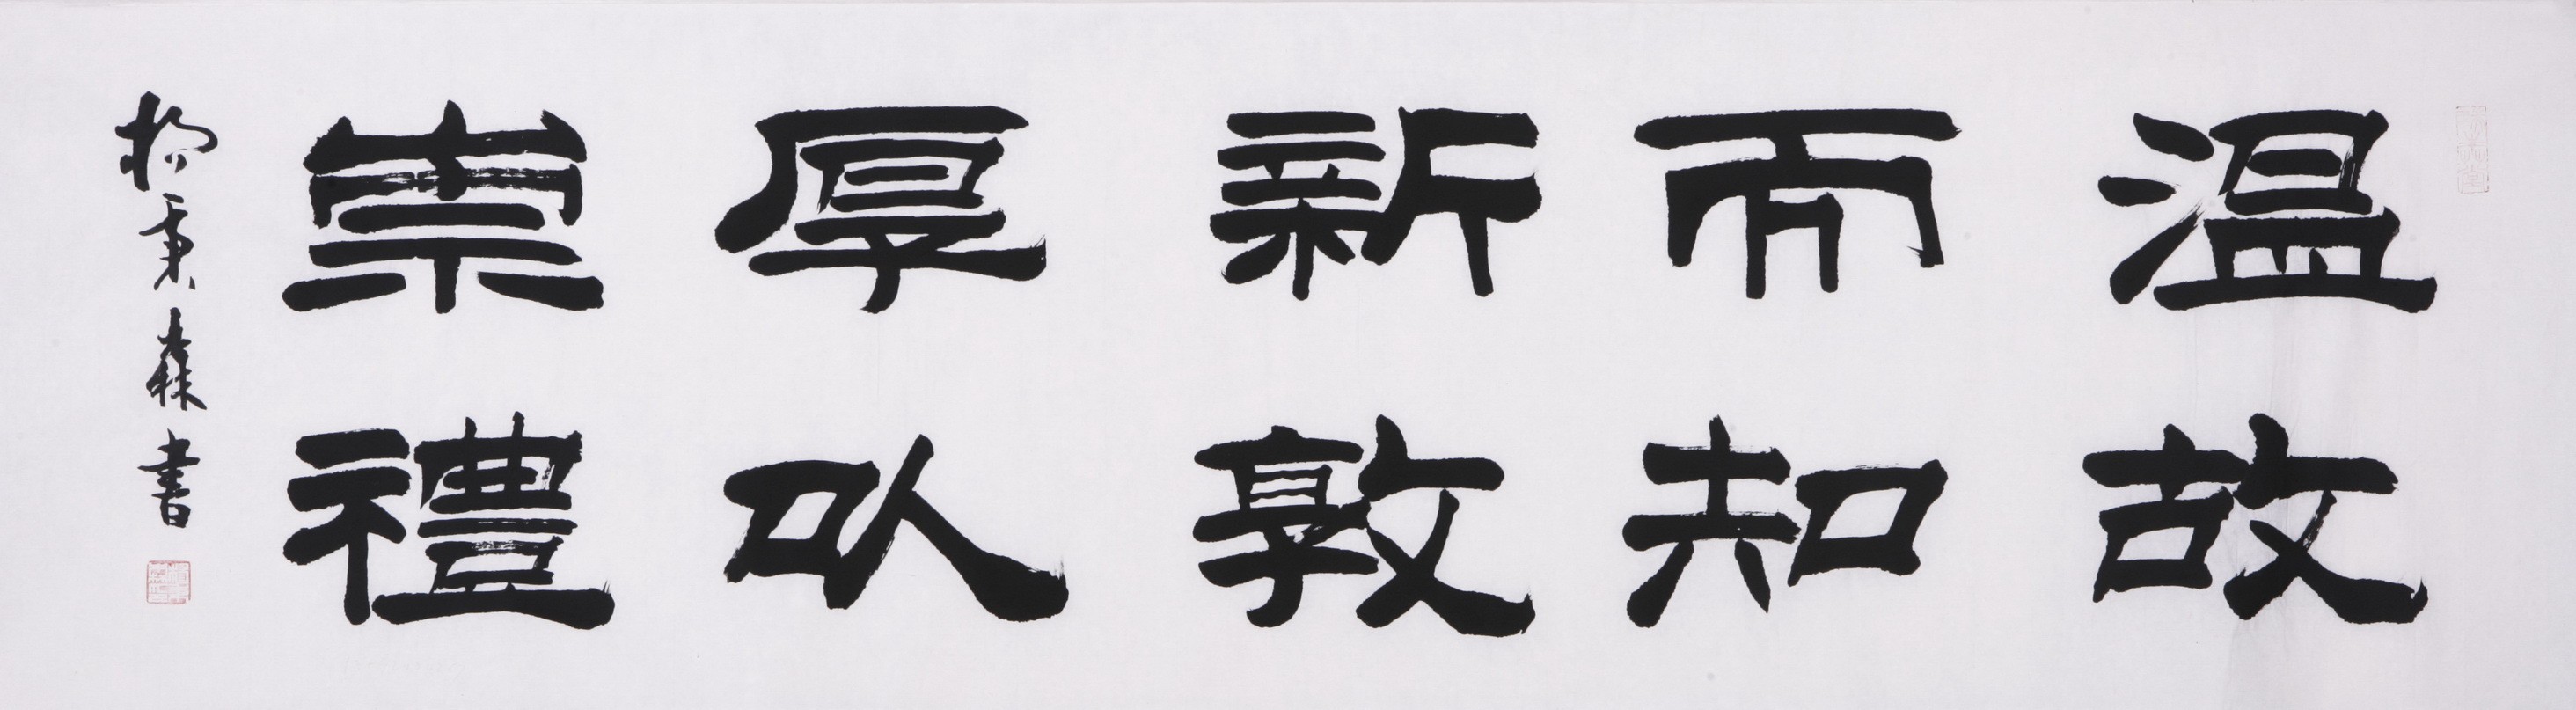 温故
而知
新敦
厚以
崇禮
楊秉森書